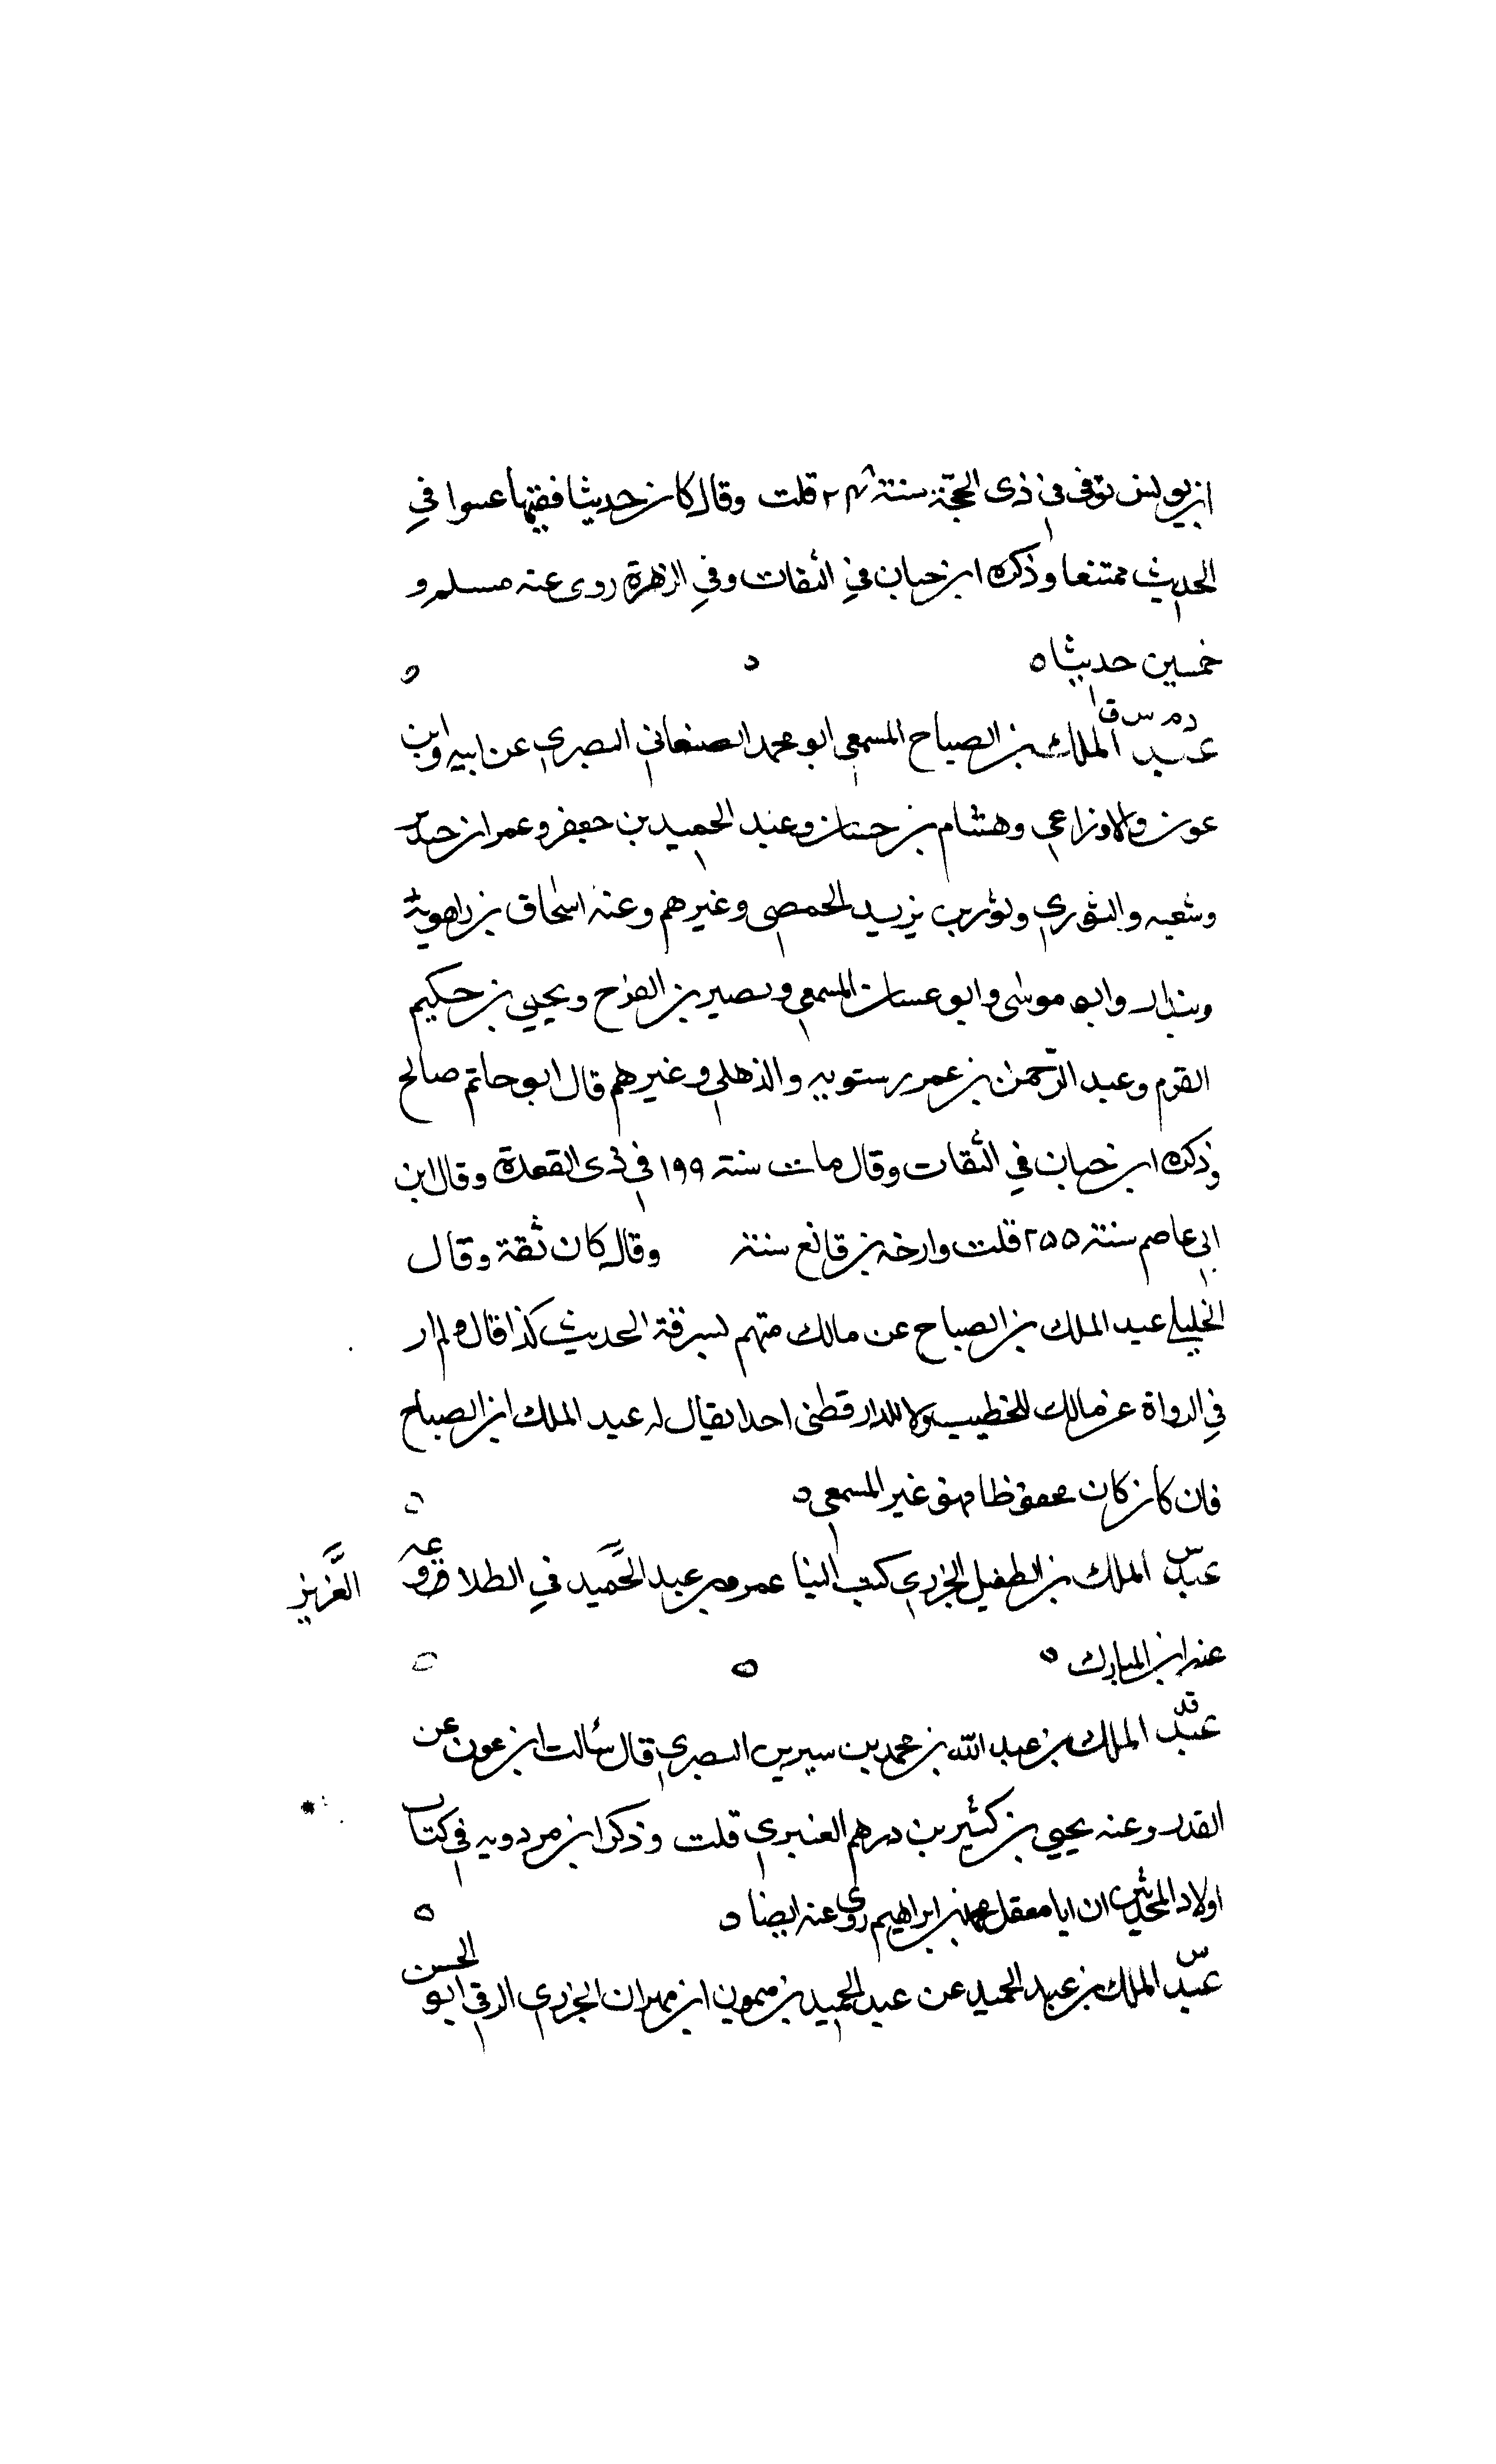 ابن يونس توفى فى ذى الحجة سنة ٢٤٨ قلت وقال كان حديثا فقيها عسوا في
الحديث ممتنعا وذكره ابن حبان في الثقات وفي الزهرة روى عنه مسلم و
خمسين حديثا ه
د م س ق
عبد الملك بن الصباح المسمعي ابو محمد الصنعاني البصري عن ابيه وابن
عون والاوزاعي وهشام بن حسان وعبد الحميد بن جعفر وعمران بن حدير
وشعبه والثوري وثور بن يزيد الحمصي وغيرهم وعنه اسحاق بن راهوية
وبندار وابو موسى وابو غسان المسمعي ونصير بن الفرج ويحيى بن حكيم
المقوم وعبد الرحمن بن عمر رستويه والذهلي وغيرهم قال ابو حاتم صالح
وذكره ابن حبان في الثقات وقال مات سنة ١٩٩ في ذى القعدة وقال ابن
ابي عاصم سنة ٢٥٥ قلت وارخه بن قانع سنة وقال كان ثقة وقال
الخليلي عبد الملك بن الصباح عن مالك متهم بسرقة الحديث كذا قال ولم ار
في الرواة عن مالك للخطيب ولا للدارقطني احدا يقال له عبد الملك ابن الصباح
فان كان كان محفوظا فهو غير المسمعي ه
س
عبد الملك بن الطفيل الجزري كتب الينا عمر بن عبد الحميد في الطلا وعنه العزيز
عنه ابن المبارك ه
قد
عبد الملك بن عبد الله بن محمد بن سيرين البصري قال سألت ابن عون عن
القدر وعنه يحيى بن كثير بن درهم العنبري قلت وذكر ابن مردويه في كتاب
اولاد المحدثين ان ابا معقل محمد بن ابراهيم روى عنه ايضا ه
س
عبد الملك بن عبد الحميد عن عبد الحميد بن ميمون ابن مهران الجزري الرقي ابو الحسن